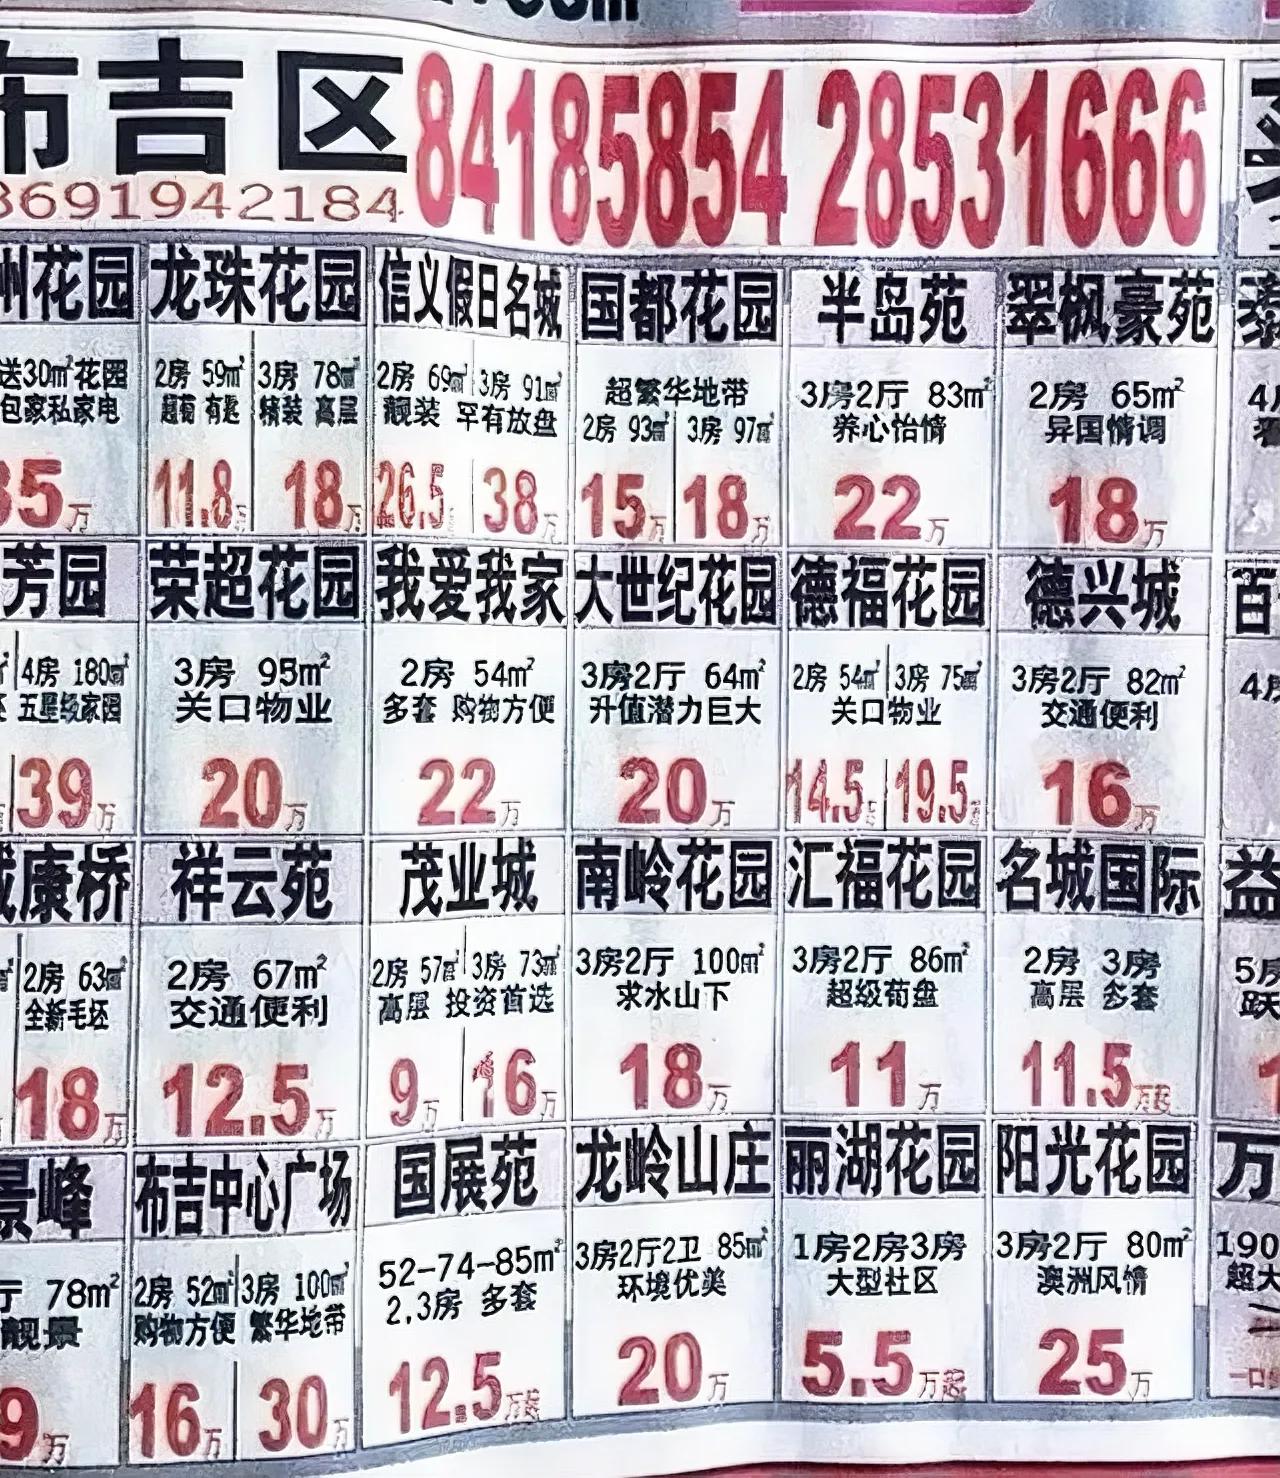 布吉区 84185854 28531666
8691942184
州花园 龙珠花园 信义假日名城 国都花园 半岛苑 翠枫豪苑
送30㎡花园 2房 59㎡ 3房 78㎡ 2房 69㎡ 3房 91㎡ 超繁华地带 3房2厅 83㎡ 2房 65㎡
包家私家电 精装 高层 靓装 罕有放盘 2房 93㎡ 3房 97㎡ 养心怡情 异国情调
35万 11.8万 18万 26.5万 38万 15万 18万 22万 18万
芳园 荣超花园 我爱我家 大世纪花园 德福花园 德兴城 百
4房 180㎡ 3房 95㎡ 2房 54㎡ 3房2厅 64㎡ 2房 54㎡ 3房 75㎡ 3房2厅 82㎡ 4房
五星级家园 关口物业 多套 购物方便 升值潜力巨大 关口物业 交通便利
39万 20万 22万 20万 14.5万 19.5万 16万
城康桥 祥云苑 茂业城 南岭花园 汇福花园 名城国际 益
2房 63㎡ 2房 67㎡ 2房 57㎡ 3房 73㎡ 3房2厅 100㎡ 3房2厅 86㎡ 2房 3房 5房
全新毛坯 交通便利 高层 投资首选 求水山下 超级荀盘 高层 多套 跃
18万 12.5万 9万 16万 18万 11万 11.5万起
景峰 布吉中心广场 国展苑 龙岭山庄 丽湖花园 阳光花园 万
厅 78㎡ 2房 52㎡ 3房 100㎡ 52-74-85㎡ 3房2厅2卫 85㎡ 1房2房3房 3房2厅 80㎡ 190
靓景 购物方便 繁华地带 2,3房 多套 环境优美 大型社区 澳洲风情 超大
9万 16万 30万 12.5万起 20万 5.5万起 25万